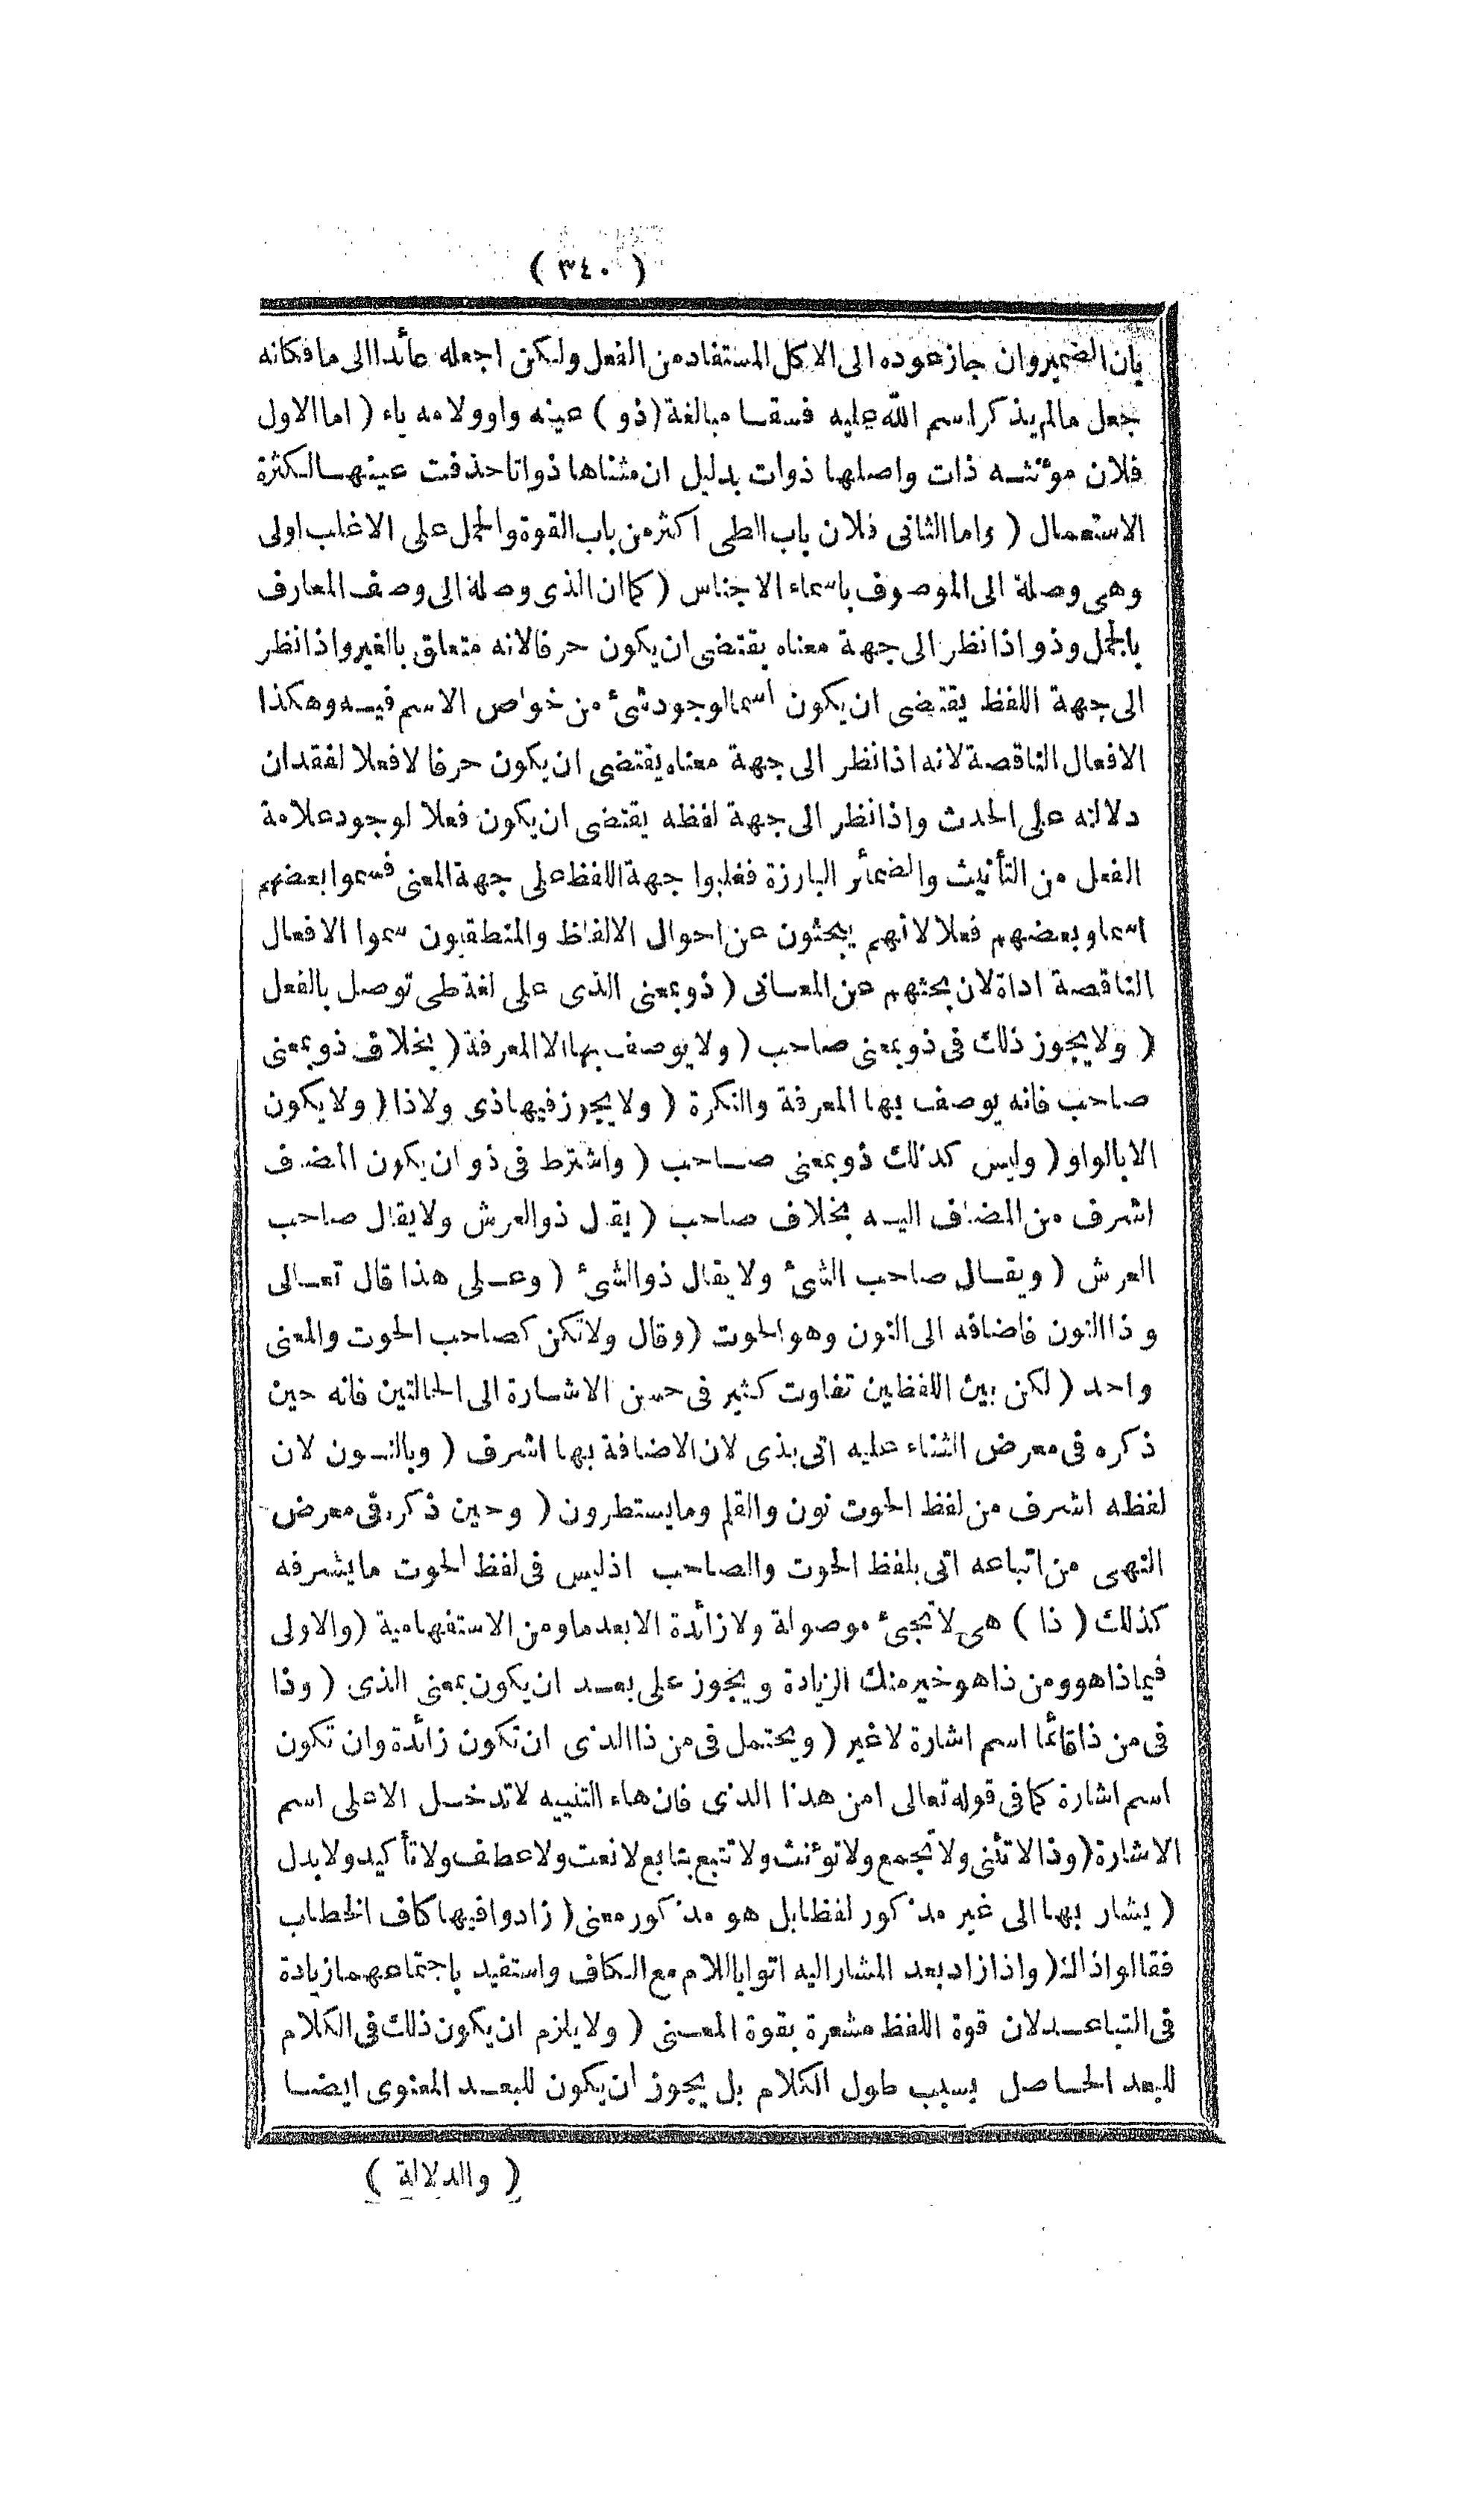 ( ٣٤٠ )
بان الضمير وان جاز عوده الى الاكل المستفاد من الفعل ولكن اجعله عائدا الى ما فكانه
جعل مالم يذكر اسم الله عليه فسقا مبالغة ( ذو ) عينه واو ولامه ياء ( اما الاول
فلان مؤنثه ذات واصلها ذوات بدليل ان مثناها ذواتا حذفت عينها لكثرة
الاستعمال ( واما الثانى فلان باب الطى اكثر من باب القوة والحمل على الاغلب اولى
وهى وصلة الى الموصوف باسماء الاجناس ( كما ان الذى وصلة الى وصف المعارف
بالجمل وذو اذا نظر الى جهة معناه يقتضى ان يكون حرفا لانه متعلق بالغير واذا نظر
الى جهة اللفظ يقتضى ان يكون اسما لوجود شئ من خواص الاسم فيه وهكذا
الافعال الناقصة لانه اذا نظر الى جهة معناه يقتضى ان يكون حرفا لا فعلا لفقدان
دلالته على الحدث واذا نظر الى جهة لفظه يقتضى ان يكون فعلا لوجود علامة
الفعل من التأنيث والضمائر البارزة فغلبوا جهة اللفظ على جهة المعنى فسموا بعضهم
اسما وبعضهم فعلا لانهم يبحثون عن احوال الالفاظ والمنطقيون سموا الافعال
الناقصة اداة لان بحثهم عن المعانى ( ذو بمعنى الذى على لغة طى توصل بالفعل
( ولا يجوز ذلك فى ذو بمعنى صاحب ( ولا يوصف بها الا المعرفة ( بخلاف ذو بمعنى
صاحب فانه يوصف بها المعرفة والنكرة ( ولا يجوز فيها ذى ولا ذا ( ولا يكون
الا بالواو ( وليس كذلك ذو بمعنى صاحب ( واشترط فى ذو ان يكون المضاف
اشرف من المضاف اليه بخلاف صاحب ( يقال ذو العرش ولا يقال صاحب
العرش ( ويقال صاحب الشئ ولا يقال ذو الشئ ( وعلى هذا قال تعالى
وذا النون فاضافه الى النون وهو الحوت ( وقال ولا تكن كصاحب الحوت والمعنى
واحد ( لكن بين اللفظين تفاوت كثير فى حسن الاشارة الى الحالتين فانه حين
ذكره فى معرض الثناء عليه اتى بذى لان الاضافة بها اشرف ( وبالنون لان
لفظه اشرف من لفظ الحوت نون والقلم وما يسطرون ( وحين ذكره فى معرض
النهى من اتباعه اتى بلفظ الحوت والصاحب اذ ليس فى لفظ الحوت ما يشرفه
كذلك ( ذا ) هى لا تجئ موصولة ولا زائدة الا بعد ما ومن الاستفهامية ( والاولى
فيما ذا هو ومن ذا هو خير منك الزيادة ويجوز على بعد ان يكون بمعنى الذى ( وذا
فى من ذا قائما اسم اشارة لا غير ( ويحتمل فى من ذا الذى ان تكون زائدة وان تكون
اسم اشارة كما فى قوله تعالى امن هذا الذى فان هاء التنبيه لا تدخل الا على اسم
الاشارة ( وذا لا تثنى ولا تجمع ولا تؤنث ولا تتبع بتابع لا نعت ولا عطف ولا تأكيد ولا بدل
( يشار بها الى غير مذكور لفظا بل هو مذكور معنى ( زادوا فيها كاف الخطاب
فقالوا ذاك ( واذا زاد بعد المشار اليه اتوا باللام مع الكاف واستفيد باجتماعهما زيادة
فى التباعد لان قوة اللفظ مشعرة بقوة المعنى ( ولا يلزم ان يكون ذلك فى الكلام
للبعد الحاصل بسبب طول الكلام بل يجوز ان يكون للبعد المعنوى ايضا
( والدلالة )